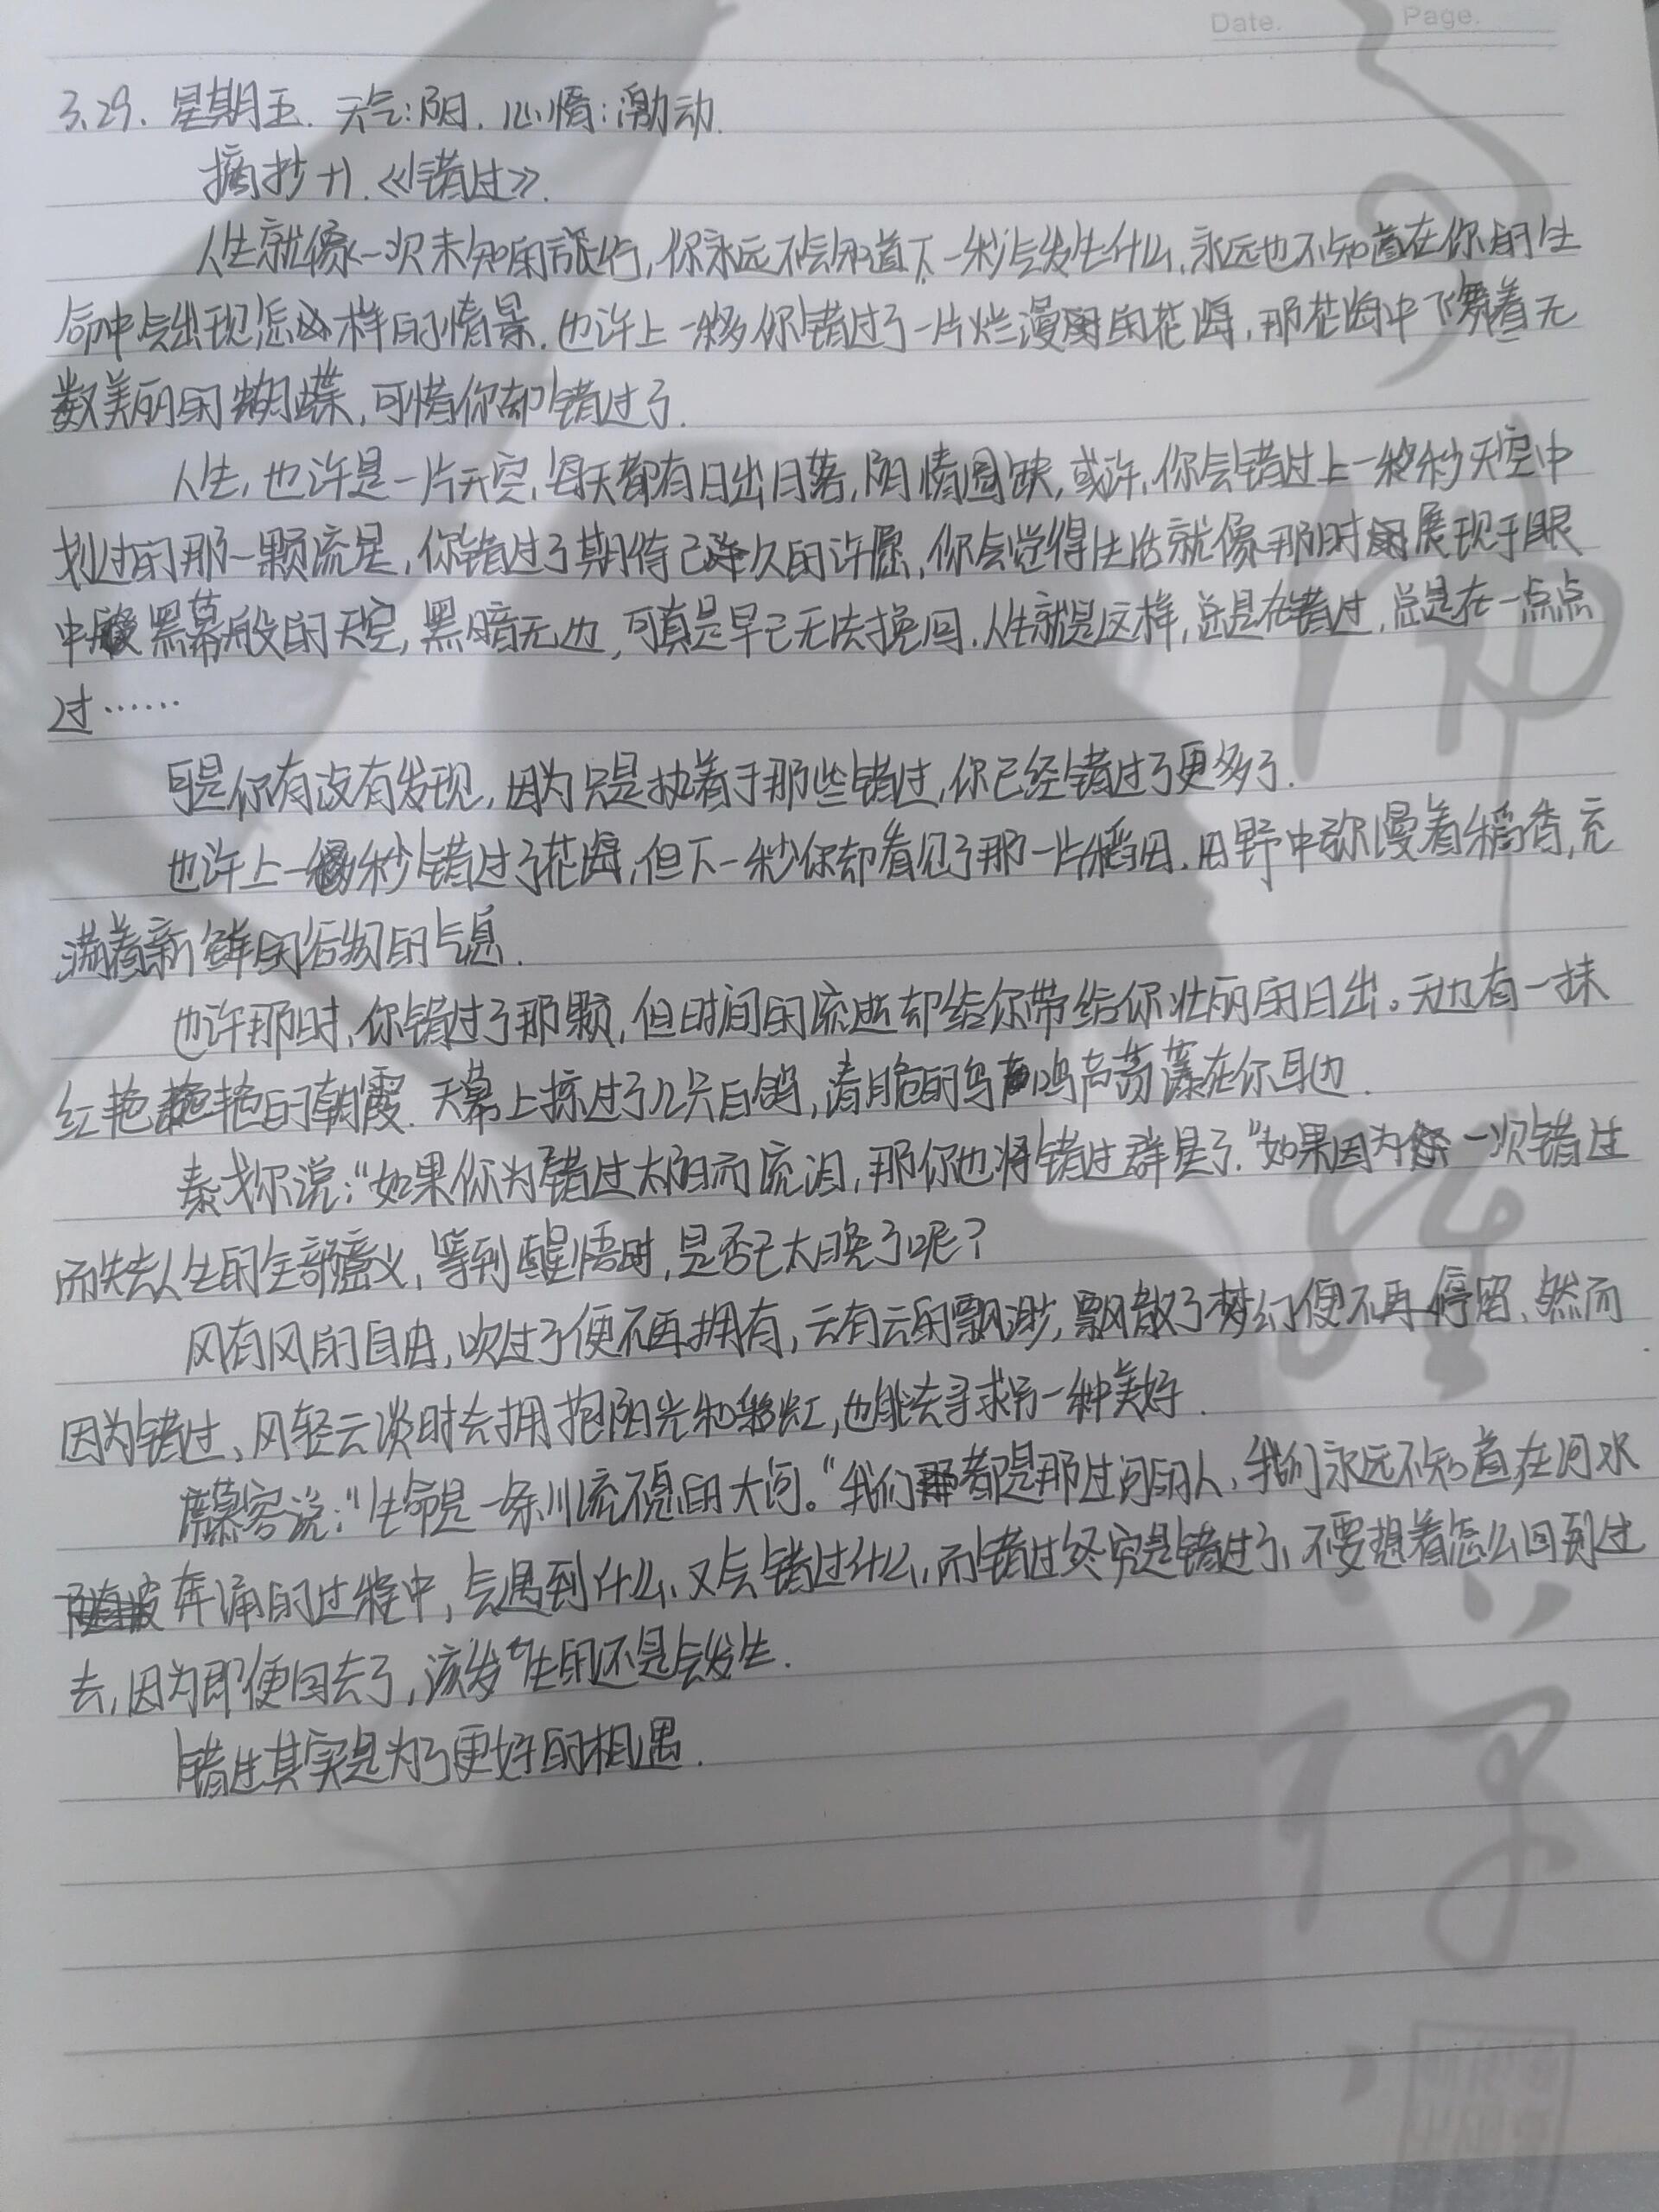 Date. Page.
3.29. 星期五. 天气:阴. 心情:激动.
摘抄十一.《错过》.
人生就像一次未知的旅行,你永远不会知道下一秒会发生什么,永远也不知道在你的生
命中会出现怎么样的情景.也许上一秒你错过了一片烂漫的花海,那花海中飞舞着无
数美丽的蝴蝶,可惜你却错过了.
人生,也许是一片天空,每天都有日出日落,阴晴圆缺,或许,你会错过上一秒天空中
划过的那一颗流星,你错过了期待已久的许愿,你会觉得生活就像那时展现于眼
中黑幕般的天空,黑暗无边,可真是早已无法挽回.人生就是这样,总是在错过,总是在一点点
过……
可是你有没有发现,因为只是执着于那些错过,你已经错过了更多了.
也许上一秒错过了花海,但下一秒你却看见了那一片稻田.田野中弥漫着稻香,充
满着新鲜的谷物的气息.
也许那时,你错过了那颗,但时间的流逝却给你带给你壮丽的日出。天边有一抹
红艳艳的朝霞.天幕上掠过了几只白鸽,清脆的鸟鸣声荡漾在你耳边.
泰戈尔说:"如果你为错过太阳而流泪,那你也将错过群星了."如果因为一次错过
而失去人生的全部意义,等到醒悟时,是否已太晚了呢?
风有风的自由,吹过了便不再拥有,云有云的飘渺,飘散了梦幻便不再停留、然而
因为错过、风轻云淡时去拥抱阳光和彩虹,也能去寻求另一种美好.
席慕容说:"生命是一条川流不息的大河。"我们都是那过河的人,我们永远不知道在河水
奔涌的过程中,会遇到什么、又会错过什么,而错过终究是错过了、不要想着怎么回到过
去,因为即便回去了,该发生的还是会发生.
错过其实是为了更好的相遇.